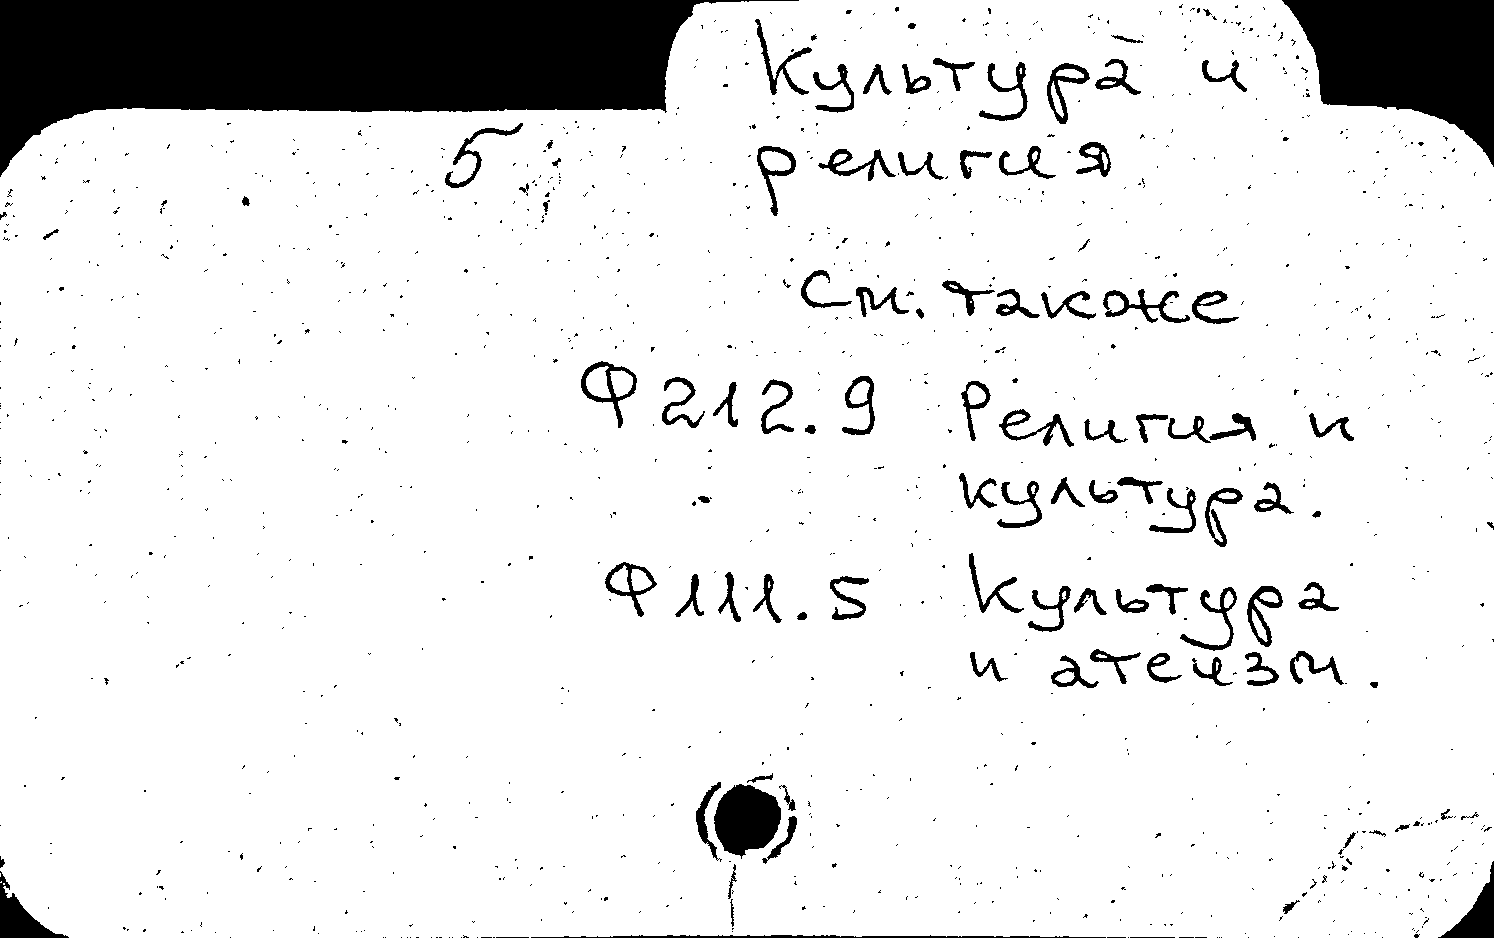 Культура и
5 религия
См. также
Ф212.9 Религия и
культура.
Ф111.5 Культура
и атеизм.